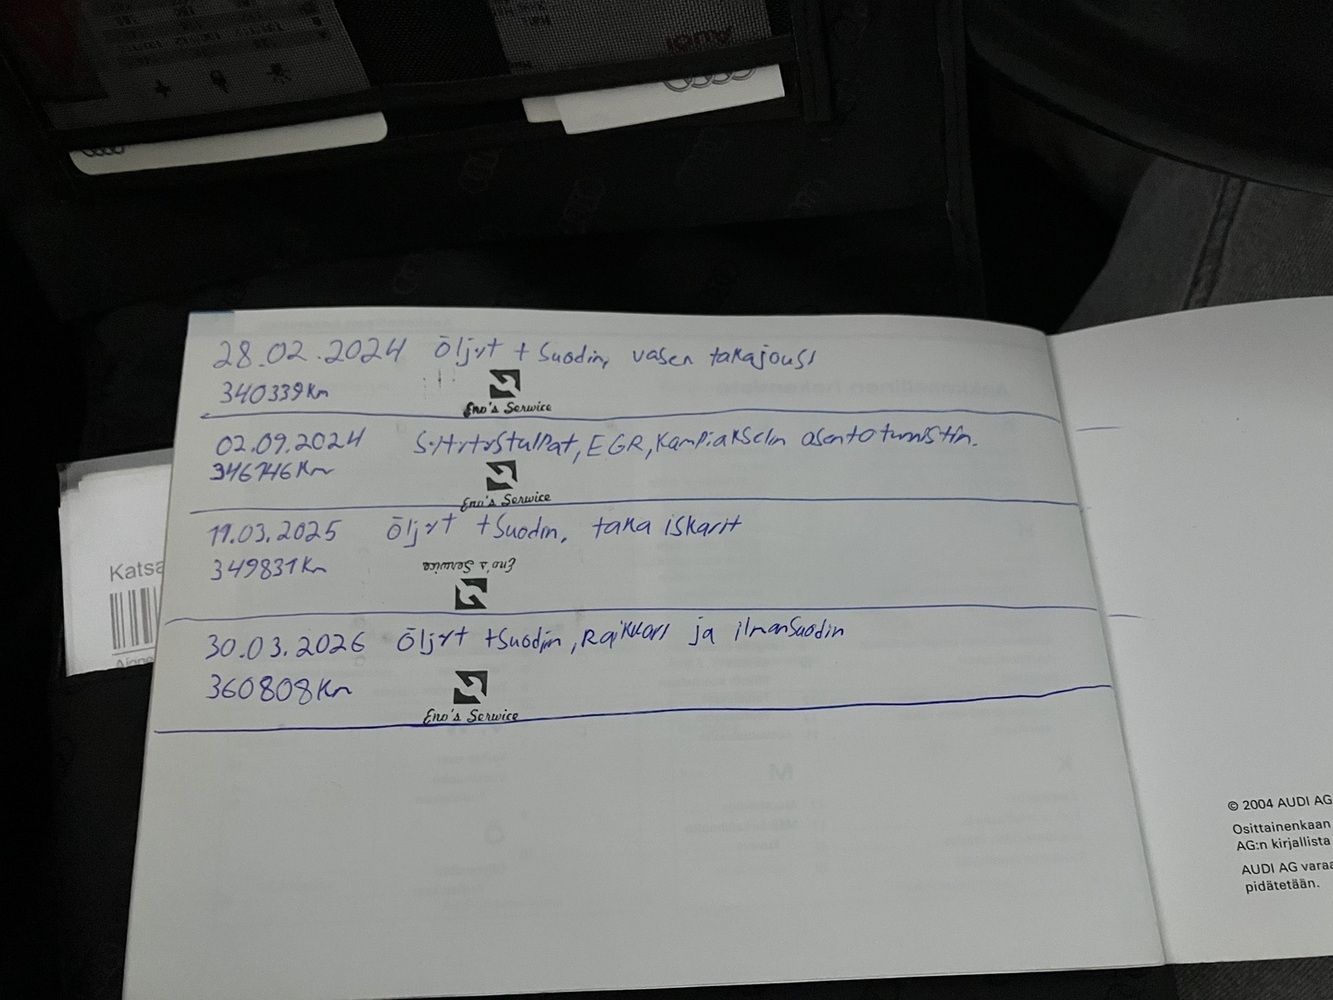 28.02.2024 Öljyt + Suodin, vasen takajousi
340339 Km
Eno's Serwice
02.09.2024 Sytytystulpat, EGR, Kampiakselin asentotunnistin.
346746 Km
Eno's Serwice
19.03.2025 Öljyt + Suodin, taka iskarit
349831 Km
Eno's Serwice
30.03.2026 Öljyt + Suodin, Raikkari ja ilmanSuodin
360808 Km
Eno's Serwice
Katsa
© 2004 AUDI AG
Osittainenkaan
AG:n kirjallista
AUDI AG varaa
pidätetään.